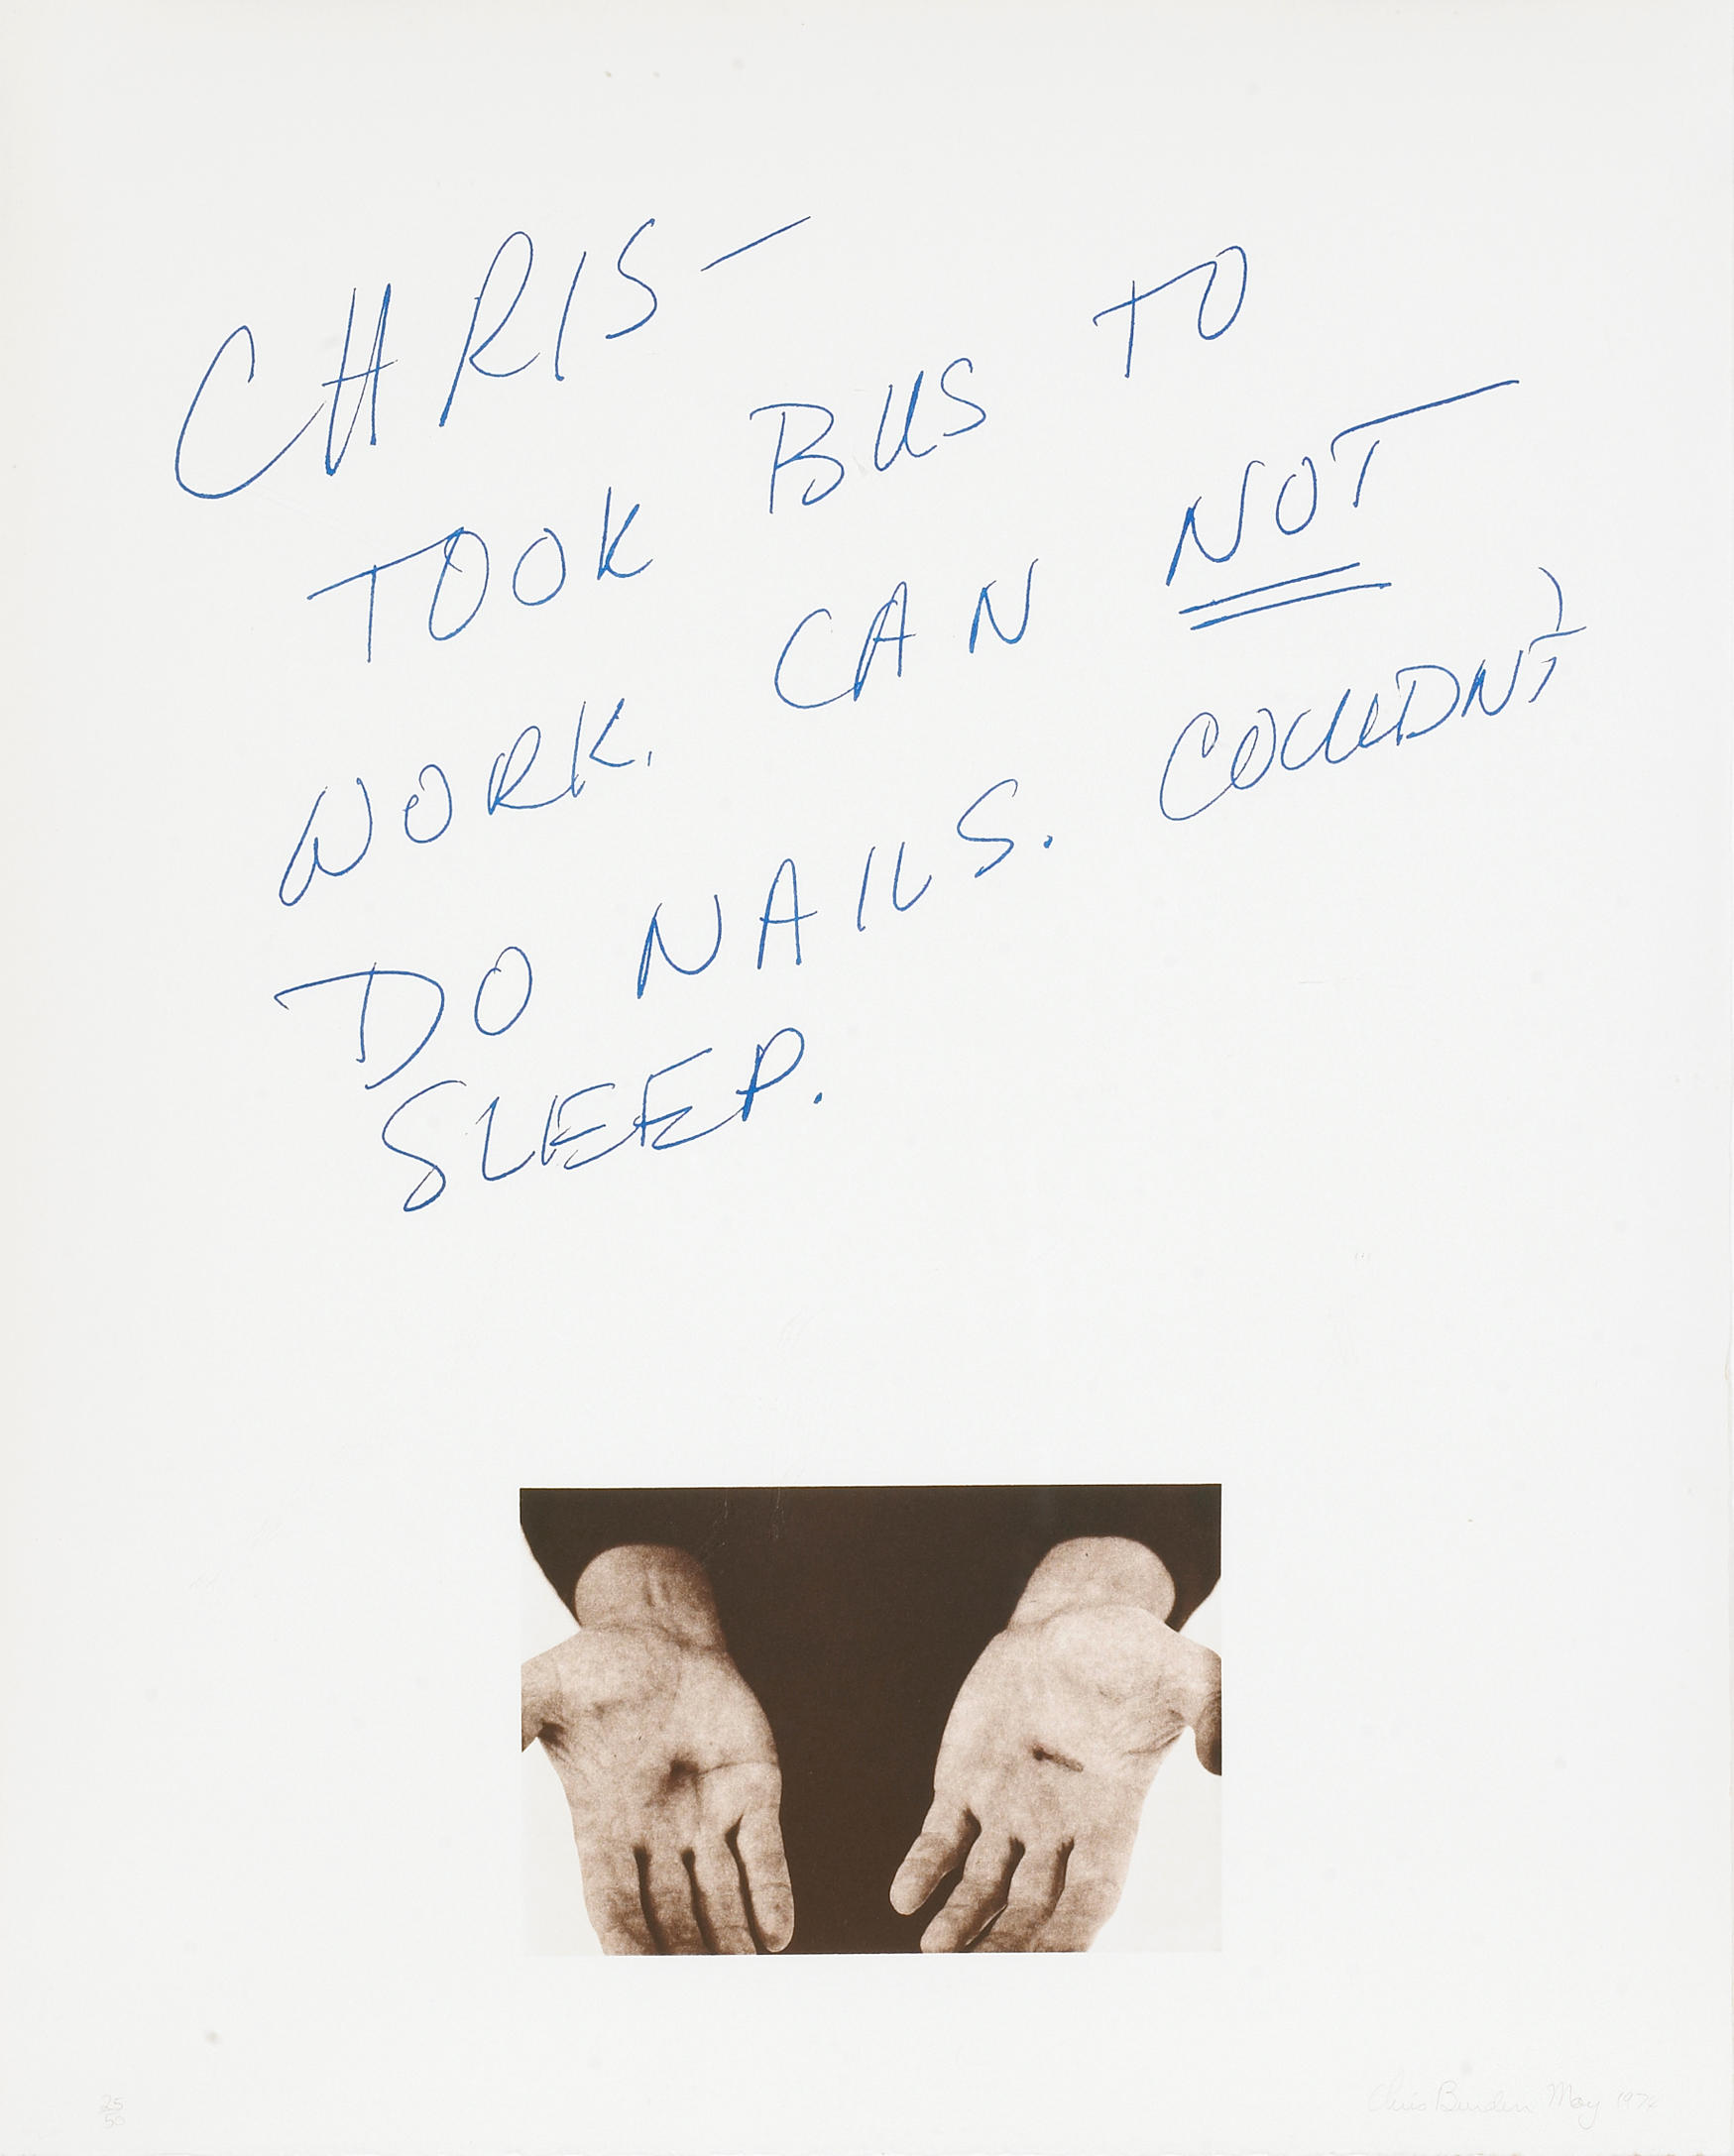 CHRIS—
TOOK BUS TO
WORK. CAN NOT
DO NAILS. COULDN'T
SLEEP.
25/50
Chris Burden May 197